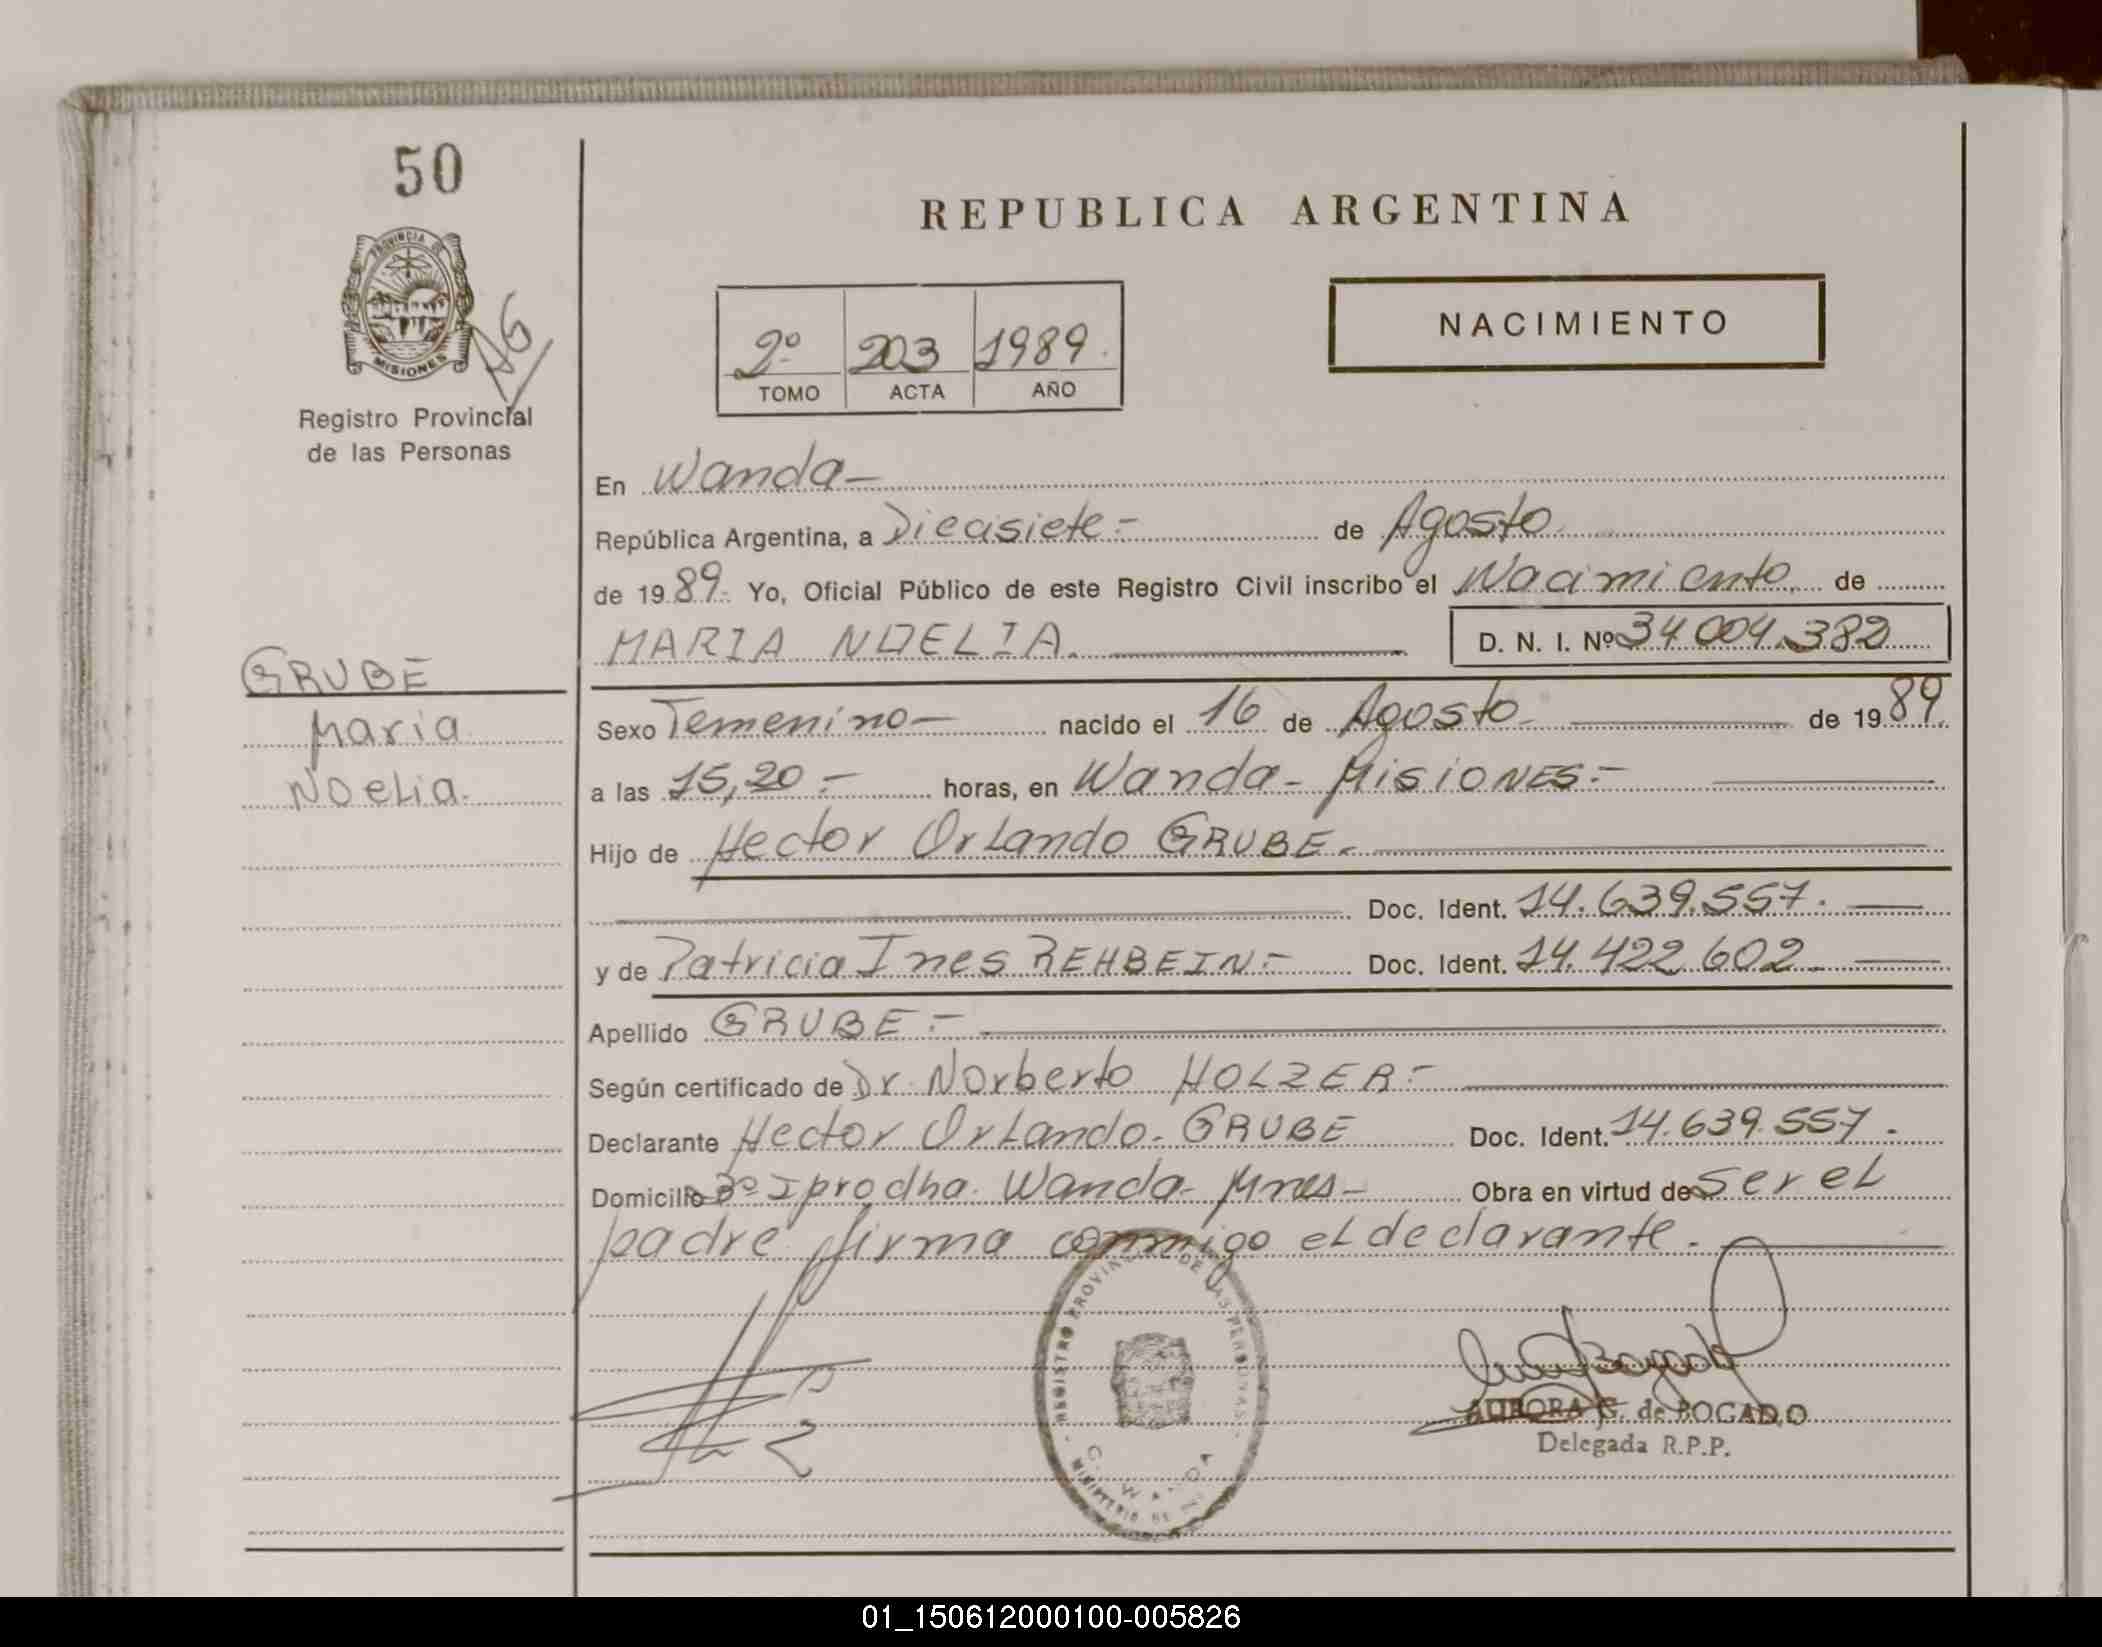 50
REPUBLICA ARGENTINA
PROVINCIA DE
MISIONES
2º 203 1989.
TOMO ACTA AÑO
NACIMIENTO
Registro Provincial
de las Personas
En Wanda-
República Argentina, a Diecisiete.- de Agosto.
de 19 89.- Yo, Oficial Público de este Registro Civil inscribo el Nacimiento, de
MARIA NOELIA. D. N. I. Nº 34.004.382
GRUBE
Maria
Noelia.
Sexo Femenino- nacido el 16 de Agosto- de 19 89.
a las 15,20.- horas, en Wanda- MisiONES.-
Hijo de Hector Orlando GRUBE.-
Doc. Ident. 14.639.557.
y de Patricia Ines REHBEIN.- Doc. Ident. 14.422.602.
Apellido GRUBE.-
Según certificado de Dr. Norberto HOLZER.-
Declarante Hector Orlando. GRUBE Doc. Ident. 14.639.557.
Domicilio Bº Iprodha. Wanda- Mnes- Obra en virtud de ser el
padre firma conmigo el declarante.
REGISTRO PROVINCIAL DE LAS PERSONAS
MINISTERIO DE
AURORA G. de BOGADO
Delegada R.P.P.
01_150612000100-005826